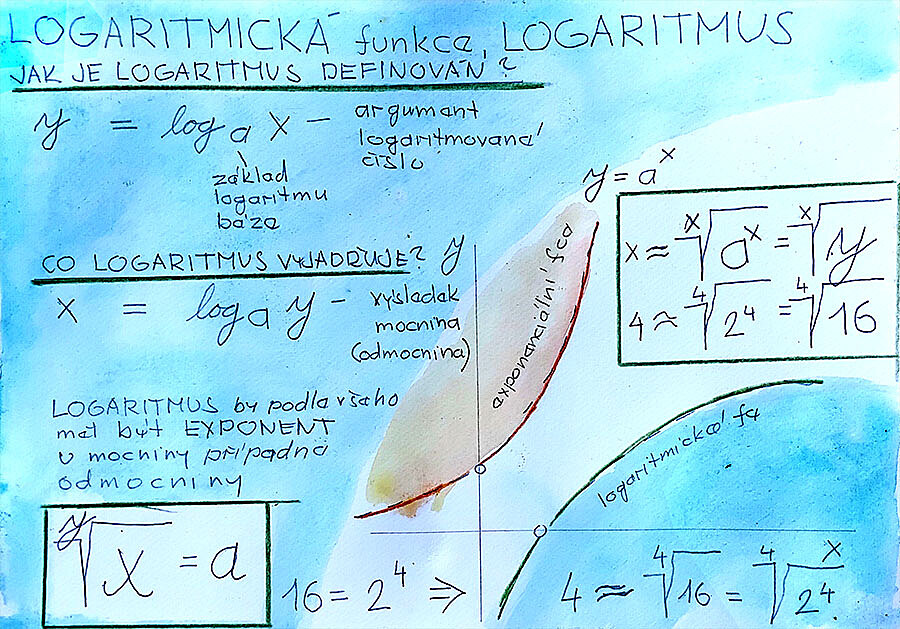 LOGARITMICKÁ funkce, LOGARITMUS
JAK JE LOGARITMUS DEFINOVÁN?
y = log a x - argument
logaritmovane'
číslo
základ
logaritmu
báze
y = a^x
CO LOGARITMUS VYJADŘUJE? y
x = log a y - výsledek
mocnina
(odmocnina)
exponenciální fce
x ≈ ˣ√aˣ = ˣ√y
4 ≈ ⁴√2⁴ = ⁴√16
LOGARITMUS by podle všeho
měl být EXPONENT
u mocniny případně
odmocniny
logaritmická fce
ʸ√x = a
16 = 2⁴ ⇒ 4 ≈ ⁴√16 = ⁴√2⁴ x